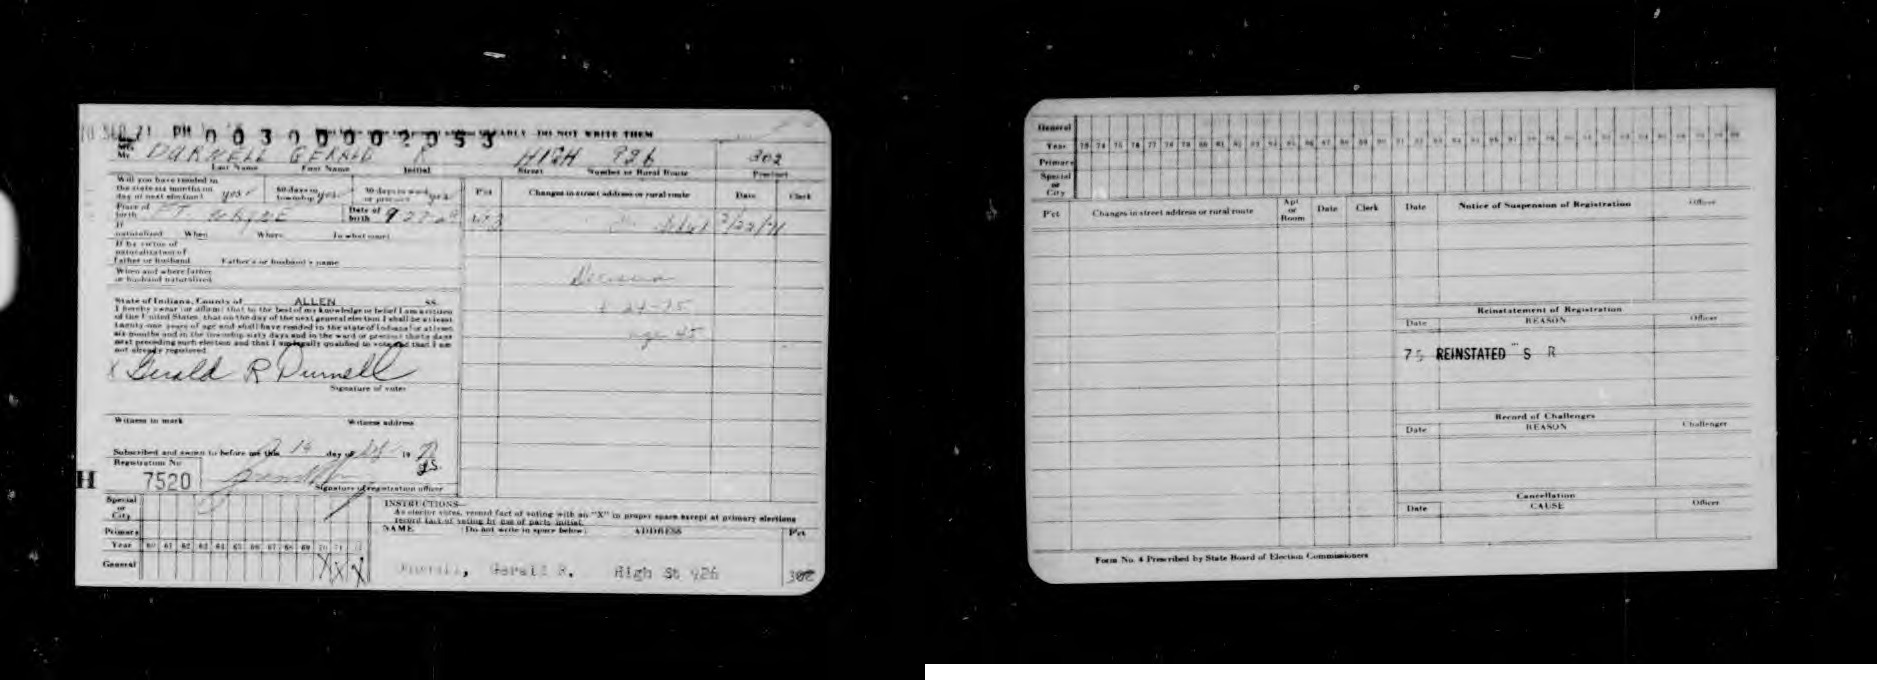 SEP 71 PM 0 0 3 0 0 0 0 2 0 5 3 DO NOT WRITE THEM
Mr. DURNELL GERALD R HIGH 926 302
Last Name First Name Initial Street Number or Rural Route Precinct
Will you have resided in
the state six months on
day of next election? yes 60 days in township? yes 30 days in ward or precinct? yes
P'ct Changes in street address or rural route Date Clerk
Place of birth FT. WAYNE Date of birth
If naturalized When Where In what court
If by virtue of
naturalization of
Father or husband Father's or husband's name
When and where father
or husband naturalized
3/22/71
Deceased
24-75
age 45
State of Indiana, County of ALLEN SS.
I hereby swear (or affirm) that to the best of my knowledge or belief I am a citizen
of the United States, that on the day of the next general election I shall be at least
twenty-one years of age and shall have resided in the state of Indiana for at least
six months and in the township sixty days and in the ward or precinct thirty days
next preceding such election and that I am legally qualified to vote and that I am
not already registered.
X Gerald R Durnell
Signature of voter
Witness to mark Witness address
Subscribed and sworn to before me this 14 day of 19
Registration No
H 7520
Signature of registration officer
Special or City
Primary
Year 60 61 62 63 64 65 66 67 68 69 70 71
General X X X
INSTRUCTIONS—
As elector votes, record fact of voting with an "X" in proper space except at primary elections
record fact of voting by use of party initial.
NAME (Do not write in space below) ADDRESS P'ct
Durnell, Gerald R. High St 926 302
General
Year 73 74 75 76 77 78 79 80 81 82 83 84 85 86 87 88 89 90 91 92 93 94 95 96 97 98 99
Primary
Special or City
P'ct Changes in street address or rural route Apt or Room Date Clerk
Date Notice of Suspension of Registration Officer
Reinstatement of Registration
Date REASON Officer
75 REINSTATED S R
Record of Challenges
Date REASON Challenger
Cancellation
Date CAUSE Officer
Form No. 4 Prescribed by State Board of Election Commissioners